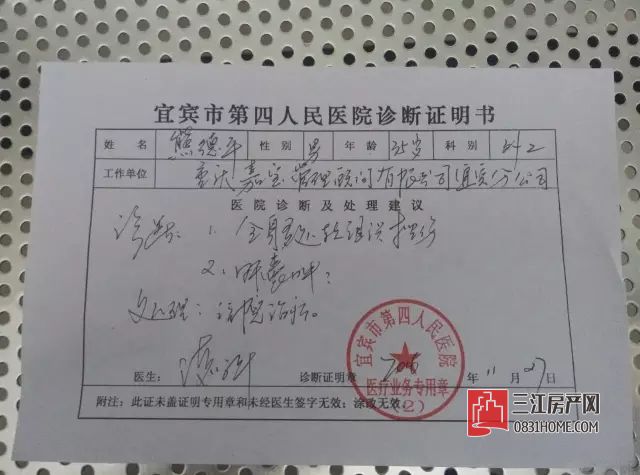 宜宾市第四人民医院诊断证明书
姓名 熊德平 性别 男 年龄 35岁 科别 外2
工作单位 重庆嘉宝管理顾问有限公司宜宾分公司
医院诊断及处理建议
诊断: 1. 全身多处软组织损伤
2.
处理: 住院治疗。
医生: 诊断证明章 年 11 月 27 日
宜宾市第四人民医院
医疗业务专用章
(2)
附注:此证未盖证明专用章和未经医生签字无效;涂改无效。
三江房产网
0831HOME.COM